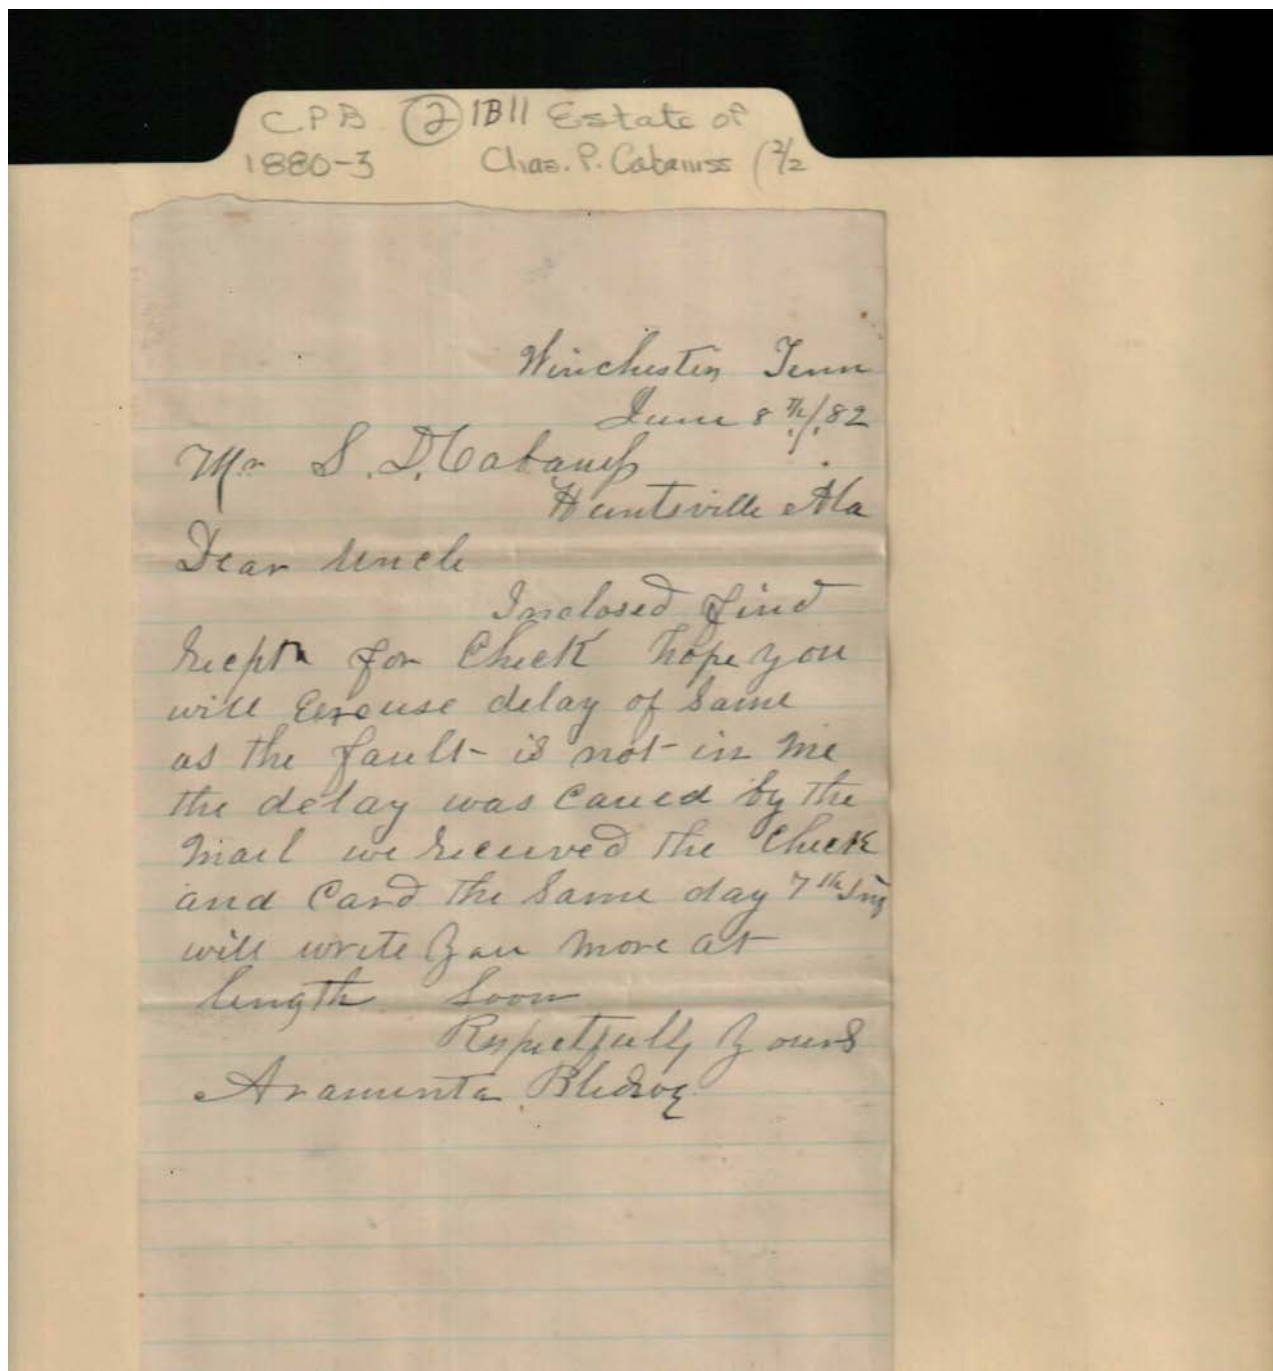 C.P.B. ② 1B11 Estate of
1880-3 Chas. P. Cabaniss (2/2
Winchester Tenn
June 8th/.82
Mr S. D. Cabaniss
Huntsville Ala
Dear Uncle
Inclosed find
Recpt for Check hope you
will Excuse delay of Same
as the fault is not in me
the delay was Caued by the
Mail we Received the Check
and Card the Same day 7th
will write you more at
length Soon
Respectfully Yours
Araminta Bledsoe